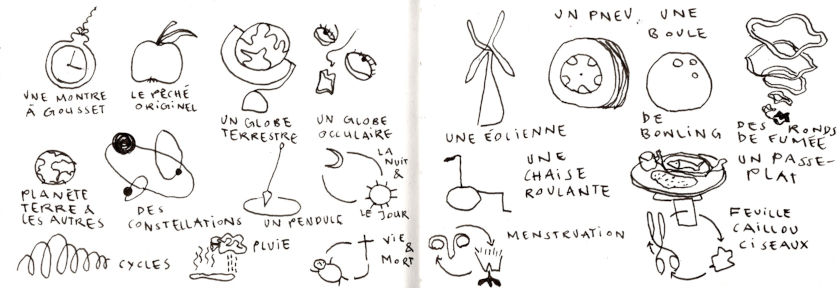 UNE MONTRE
À GOUSSET
LE PÊCHÉ
ORIGINEL
UN GLOBE
TERRESTRE
UN GLOBE
OCCULAIRE
PLANÈTE
TERRE &
LES AUTRES
DES
CONSTELLATIONS
UN PENDULE
LA
NUIT
&
LE JOUR
CYCLES
PLUIE
VIE
&
MORT
UNE ÉOLIENNE
UN PNEU
UNE
BOULE
DE
BOWLING
DES RONDS
DE FUMÉE
UNE
CHAISE
ROULANTE
UN PASSE-
PLAT
MENSTRUATION
FEUILLE
CAILLOU
CISEAUX